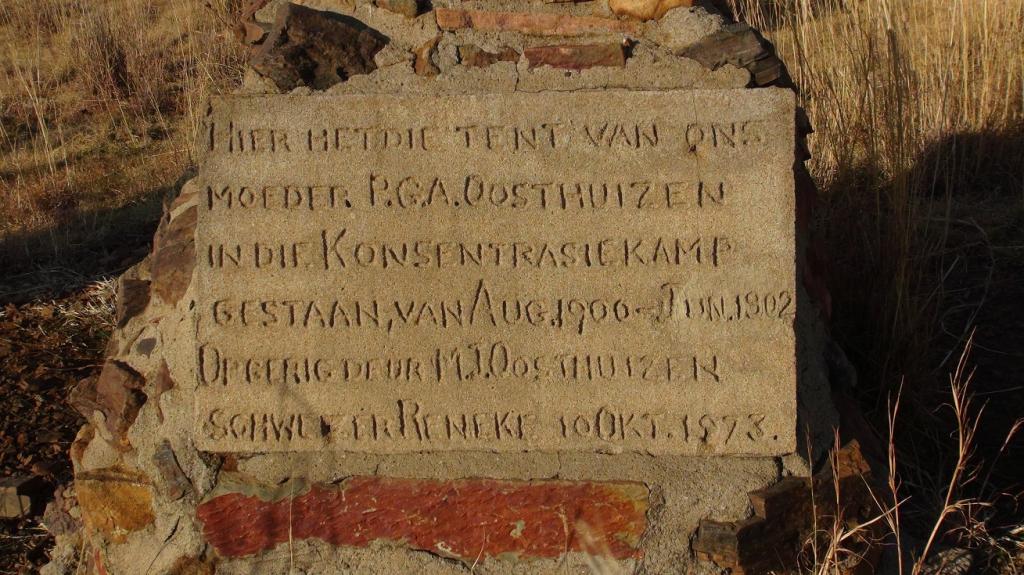 HIER HET DIE TENT VAN ONS
MOEDER P.G.A. OOSTHUIZEN
IN DIE KONSENTRASIEKAMP
GESTAAN, VAN AUG. 1900 - JUN. 1902
OPGERIG DEUR M.J. OOSTHUIZEN
SCHWEIZER RENEKE 10 OKT. 1973.